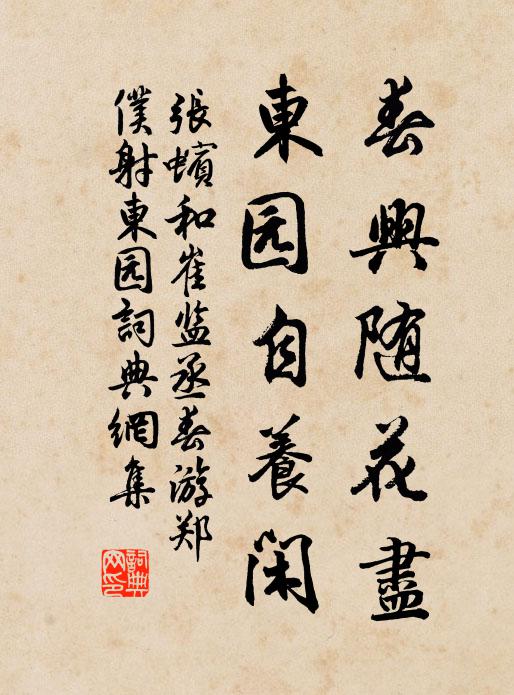 春興随花盡
東园自養閑
張蠙和崔监丞春游郑
僕射東园詞典網集
詞典网印